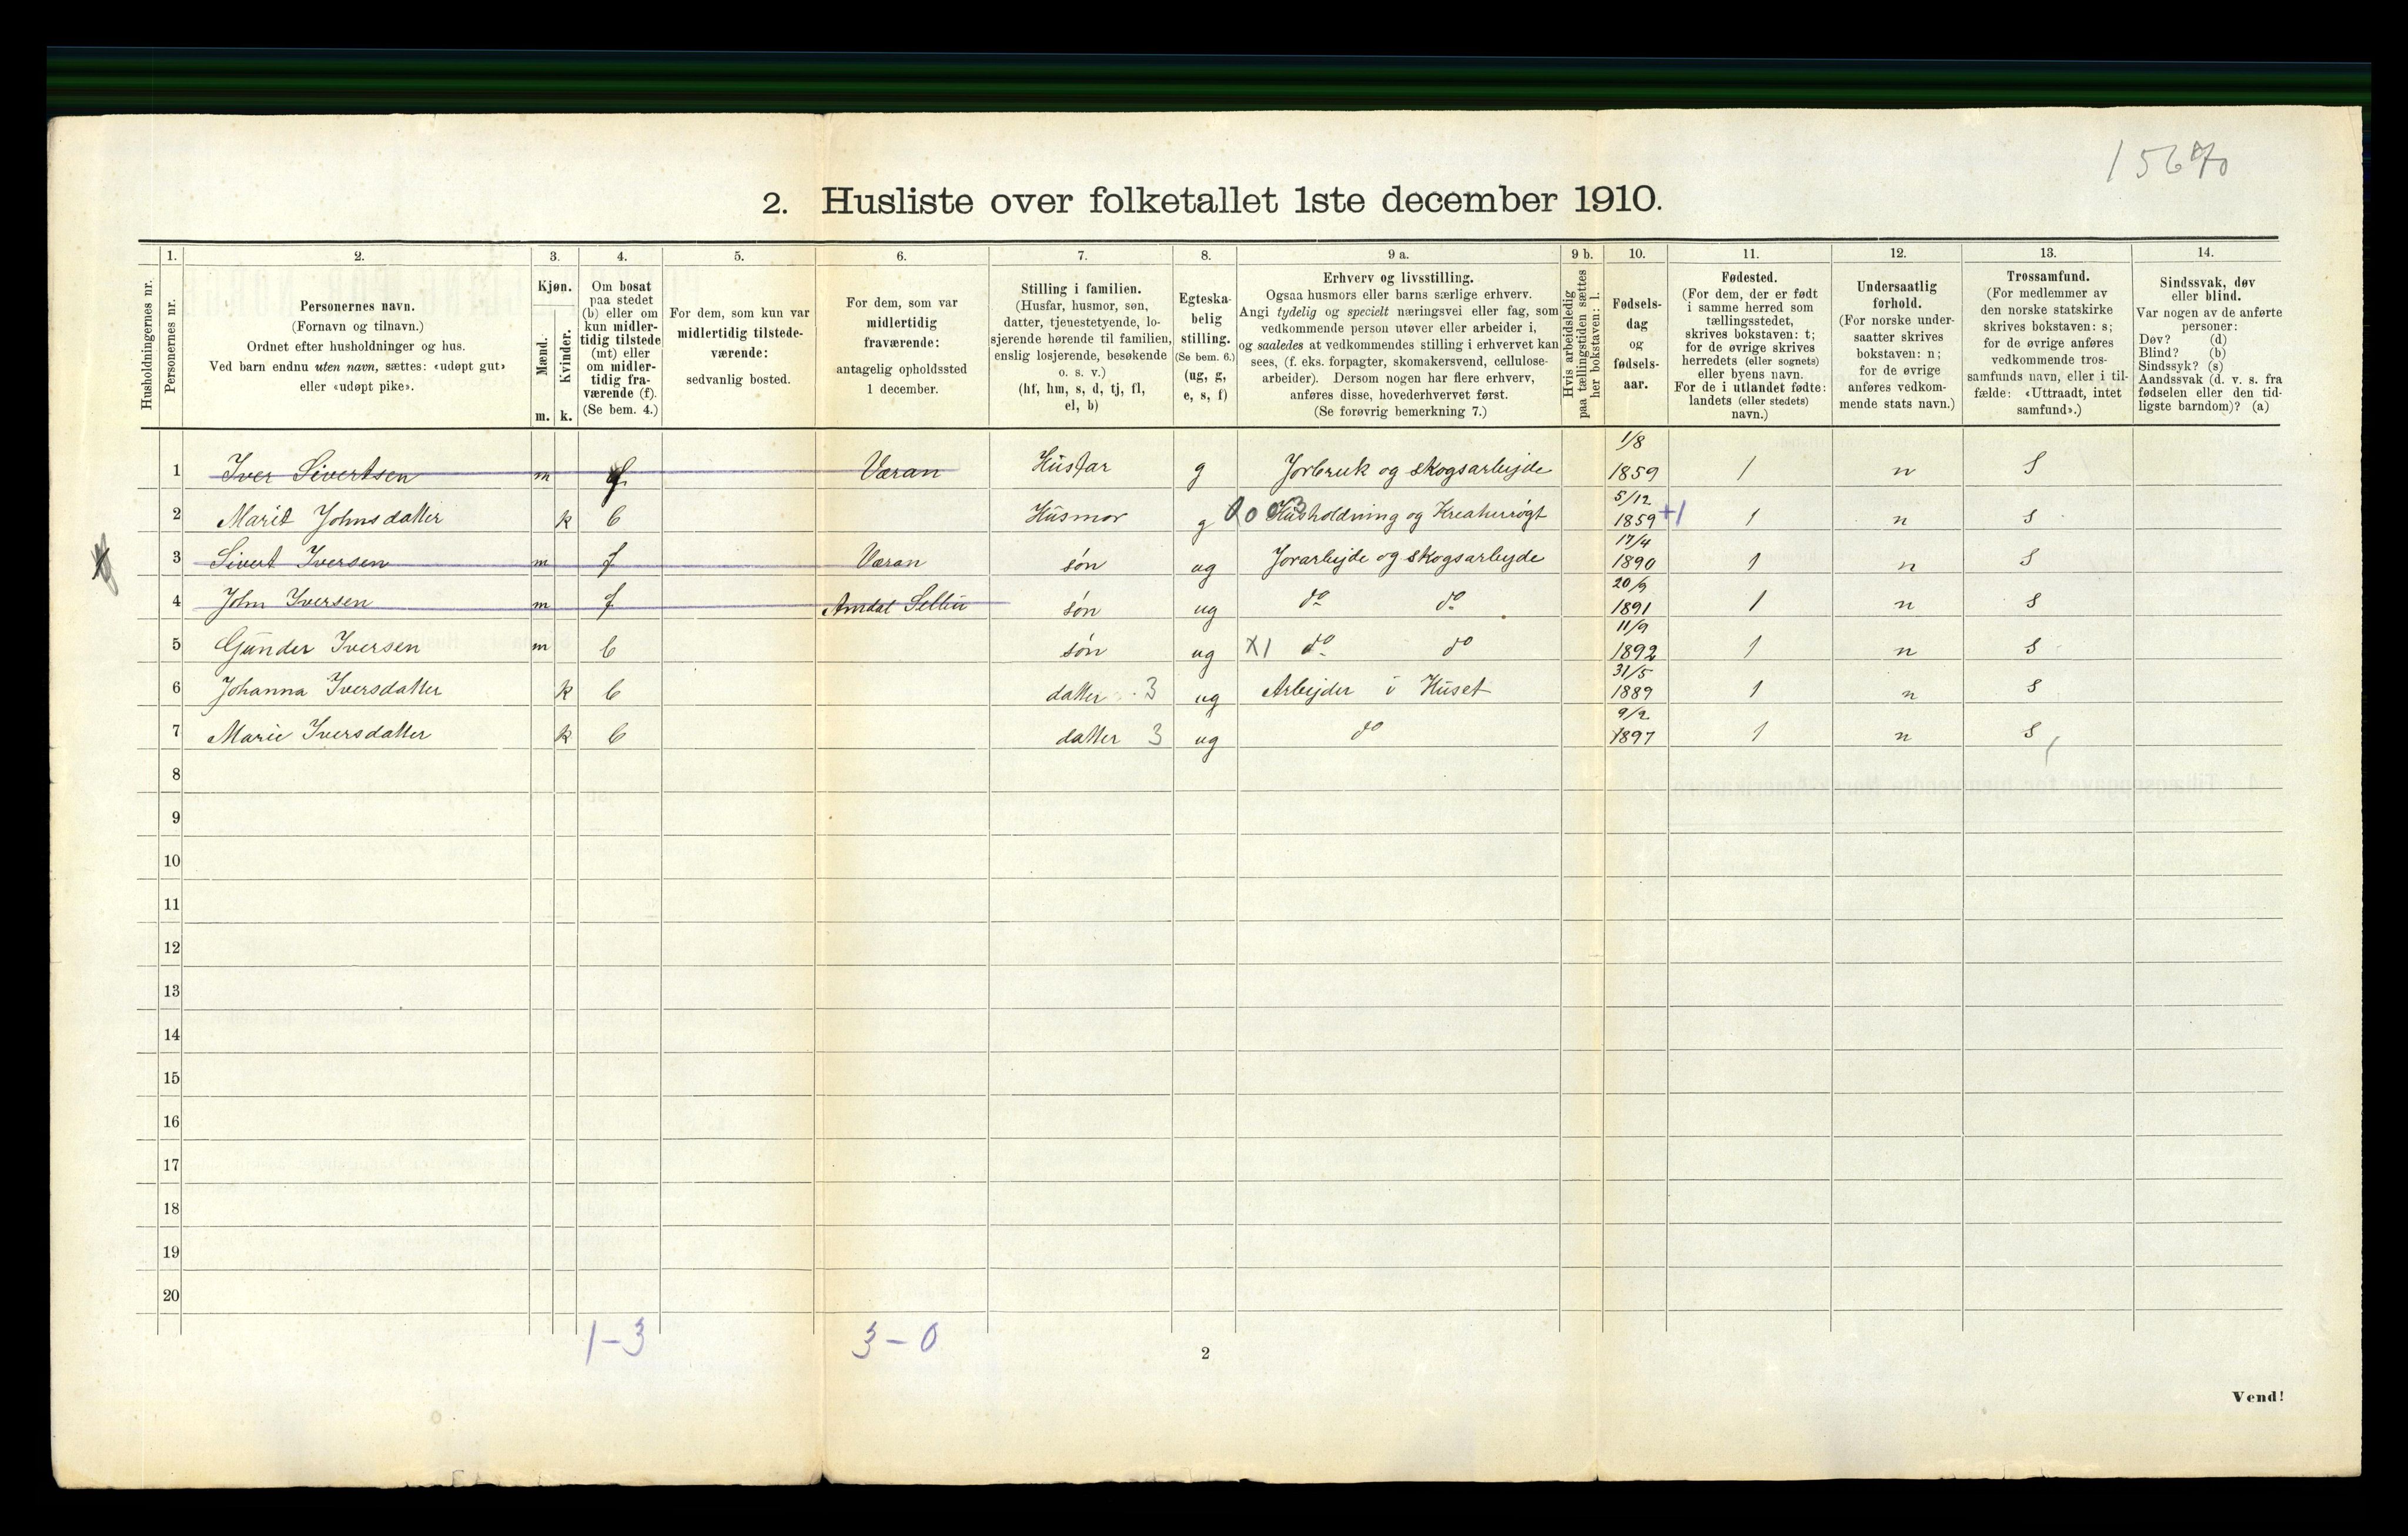 1567o
2. Husliste over folketallet 1ste december 1910.
Husholdningernes nr.
1.
Personernes nr.
2.
Personernes navn.
(Fornavn og tilnavn.)
Ordnet efter husholdninger og hus.
Ved barn endnu uten navn, sættes: «udøpt gut»
eller «udøpt pike».
3.
Kjøn.
Mænd.
Kvinder.
m. k.
4.
Om bosat
paa stedet
(b) eller om
kun midler-
tidig tilstede
(mt) eller
om midler-
tidig fra-
værende (f).
(Se bem. 4.)
5.
For dem, som kun var
midlertidig tilstede-
værende:
sedvanlig bosted.
6.
For dem, som var
midlertidig
fraværende:
antagelig opholdssted
1 december.
7.
Stilling i familien.
(Husfar, husmor, søn,
datter, tjenestetyende, lo-
sjerende hørende til familien,
enslig losjerende, besøkende
o. s. v.)
(hf, hm, s, d, tj, fl,
el, b)
8.
Egteska-
belig
stilling.
(Se bem. 6.)
(ug, g,
e, s, f)
9 a.
Erhverv og livsstilling.
Ogsaa husmors eller barns særlige erhverv.
Angi tydelig og specielt næringsvei eller fag, som
vedkommende person utøver eller arbeider i,
og saaledes at vedkommendes stilling i erhvervet kan
sees, (f. eks. forpagter, skomakersvend, cellulose-
arbeider). Dersom nogen har flere erhverv,
anføres disse, hovederhvervet først.
(Se forøvrig bemerkning 7.)
9 b.
Hvis arbeidsledig
paa tællingstiden sættes
her bokstaven: l.
10.
Fødsels-
dag
og
fødsels-
aar.
11.
Fødested.
(For dem, der er født
i samme herred som
tællingsstedet,
skrives bokstaven: t;
for de øvrige skrives
herredets (eller sognets)
eller byens navn.
For de i utlandet fødte:
landets (eller stedets)
navn.)
12.
Undersaatlig
forhold.
(For norske under-
saatter skrives
bokstaven: n;
for de øvrige
anføres vedkom-
mende stats navn.)
13.
Trossamfund.
(For medlemmer av
den norske statskirke
skrives bokstaven: s;
for de øvrige anføres
vedkommende tros-
samfunds navn, eller i til-
fælde: «Uttraadt, intet
samfund».)
14.
Sindssvak, døv
eller blind.
Var nogen av de anførte
personer:
Døv? (d)
Blind? (b)
Sindssyk? (s)
Aandssvak (d. v. s. fra
fødselen eller den tid-
ligste barndom)? (a)
1 Iver Sivertsen m f Væran Husfar g Jorbruk og skogsarbejde 1/8 1859 t n s
2 Marit Johnsdatter k b Husmor g Husholdning og Kreaturrøgt 5/12 1859 +1 t n s
3 Sivert Iversen m f Væran søn ug Jorarbejde og skogsarbejde 17/4 1890 t n s
4 John Iversen m f søn ug do do 20/9 1891 t n s
5 Gunder Iversen m b søn ug X1 do do 11/9 1892 t n s
6 Johanna Iversdatter k b datter 3 ug Arbejder i Huset 31/5 1889 t n s
7 Marie Iversdatter k b datter 3 ug do 9/2 1897 t n s
8
9
10
11
12
13
14
15
16
17
18
19
20
1-3 3-0
2
Vend!